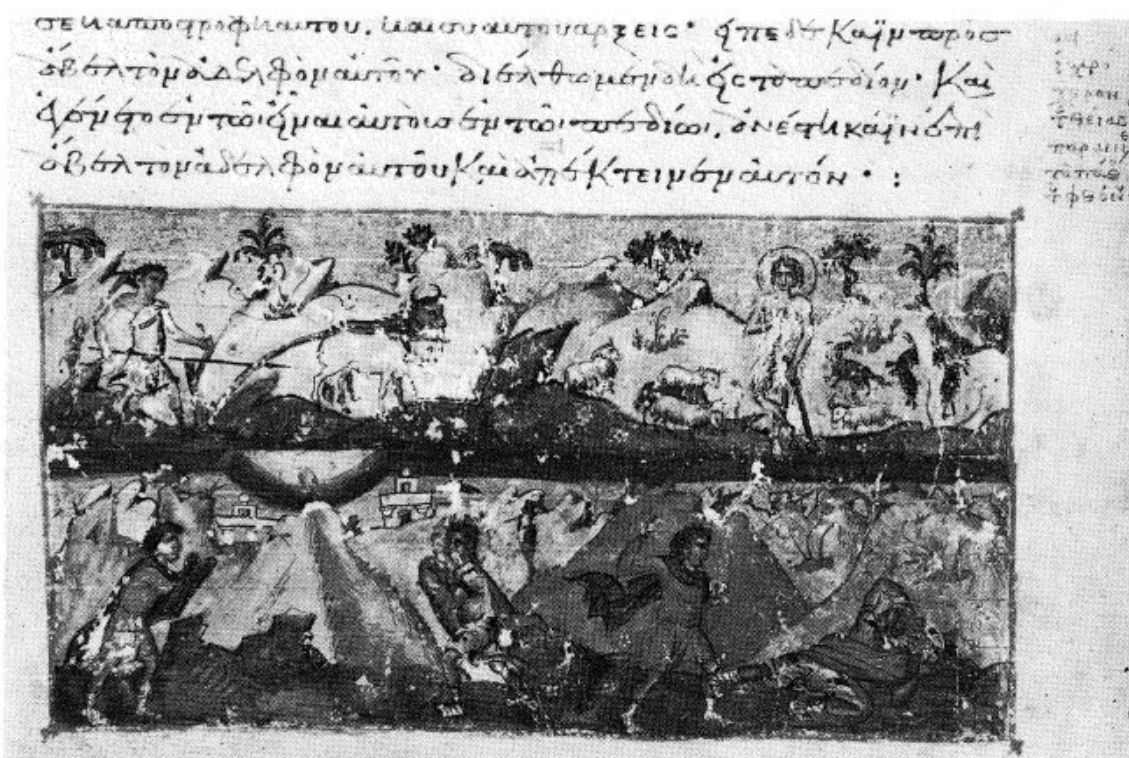 σε ἡ ἀποστροφὴ αὐτοῦ. καὶ σὺ αὐτοῦ ἄρξεις· εἶπε δὲ Κάϊν πρὸσ
ἄβελ τὸν ἀδελφὸν αὐτοῦ· διέλθωμεν δὴ εἰς τὸ πεδίον· Καὶ
ἐγένετο ἐν τῶι εἶναι αὐτοὺσ ἐν τῶι πεδίωι. ἀνέστη κάϊν ἐπὶ
ἄβελ τὸν ἀδελφὸν αὐτοῦ καὶ ἀπέκτεινεν αὐτόν· :